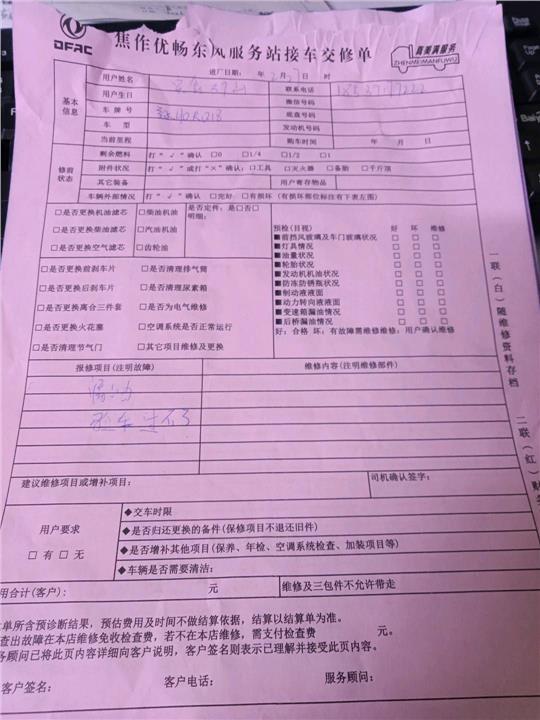 DFAC
焦作优畅东风服务站接车交修单
真美满服务
ZHENMEIMANFUWU
进厂日期： 年 2月27日 时
基本信息
用户姓名
联系电话
用户生日
微信号码
车牌号
底盘号码
车型
发动机号码
当前里程
购车时间 年 月 日
修前状态
剩余燃料 打“√”确认 □0 □1/4 □1/2 □1
附件状况 打“√”或打“×”确认：□工具 □灭火器 □备胎 □千斤顶
其它装备
用户寄存物品
车辆外部情况 打“√”确认 □完好 □有损坏（有损坏部位标注有下表左图）
□是否更换机油滤芯 □柴油机油
□是否更换柴油滤芯 □汽油机油
□是否更换空气滤芯 □齿轮油
是否定件：是□否□
明细：
□是否更换前刹车片 □是否清理排气筒
□是否更换后刹车片 □是否清理尿素箱
□是否更换离合三件套 □是否为电气维修
□是否更换火花塞 □空调系统是否正常运行
□是否清理节气门 □其它项目维修及更换
预检(目视) 好 坏 维修
■前挡风玻璃及车门玻璃状况 □ □ □
■灯具情况 □ □ □
■油量状况 □ □ □
■轮胎状况 □ □ □
■发动机机油状况 □ □ □
■防冻防锈瓶状况 □ □ □
■制动液液面 □ □ □
■动力转向液液面 □ □ □
■变速箱漏油情况 □ □ □
■后桥漏油情况 □ □ □
好：合格 坏：有故障需维修维修：用户确认维修
报修项目(注明故障)
维修内容(注明维修部件)
验车过不了
建议维修项目或增补项目：
司机确认签字：
用户要求
□有 □无
◆交车时限
◆是否归还更换的备件(保修项目不退还旧件)
◆是否增补其他项目(保养、年检、空调系统检查、加装项目等)
◆车辆是否需要清洁：
用合计(客户)： 元
维修及三包件不允许带走
单所含预诊断结果，预估费用及时间不做结算依据，结算以结算单为准。
查出故障在本店维修免收检查费，若不在本店维修，需支付检查费 元。
务顾问已将此页内容详细向客户说明，客户签名则表示已理解并接受此页内容。
客户签名： 客户电话： 服务顾问：
一联（白）随维修资料存档
二联（红）财